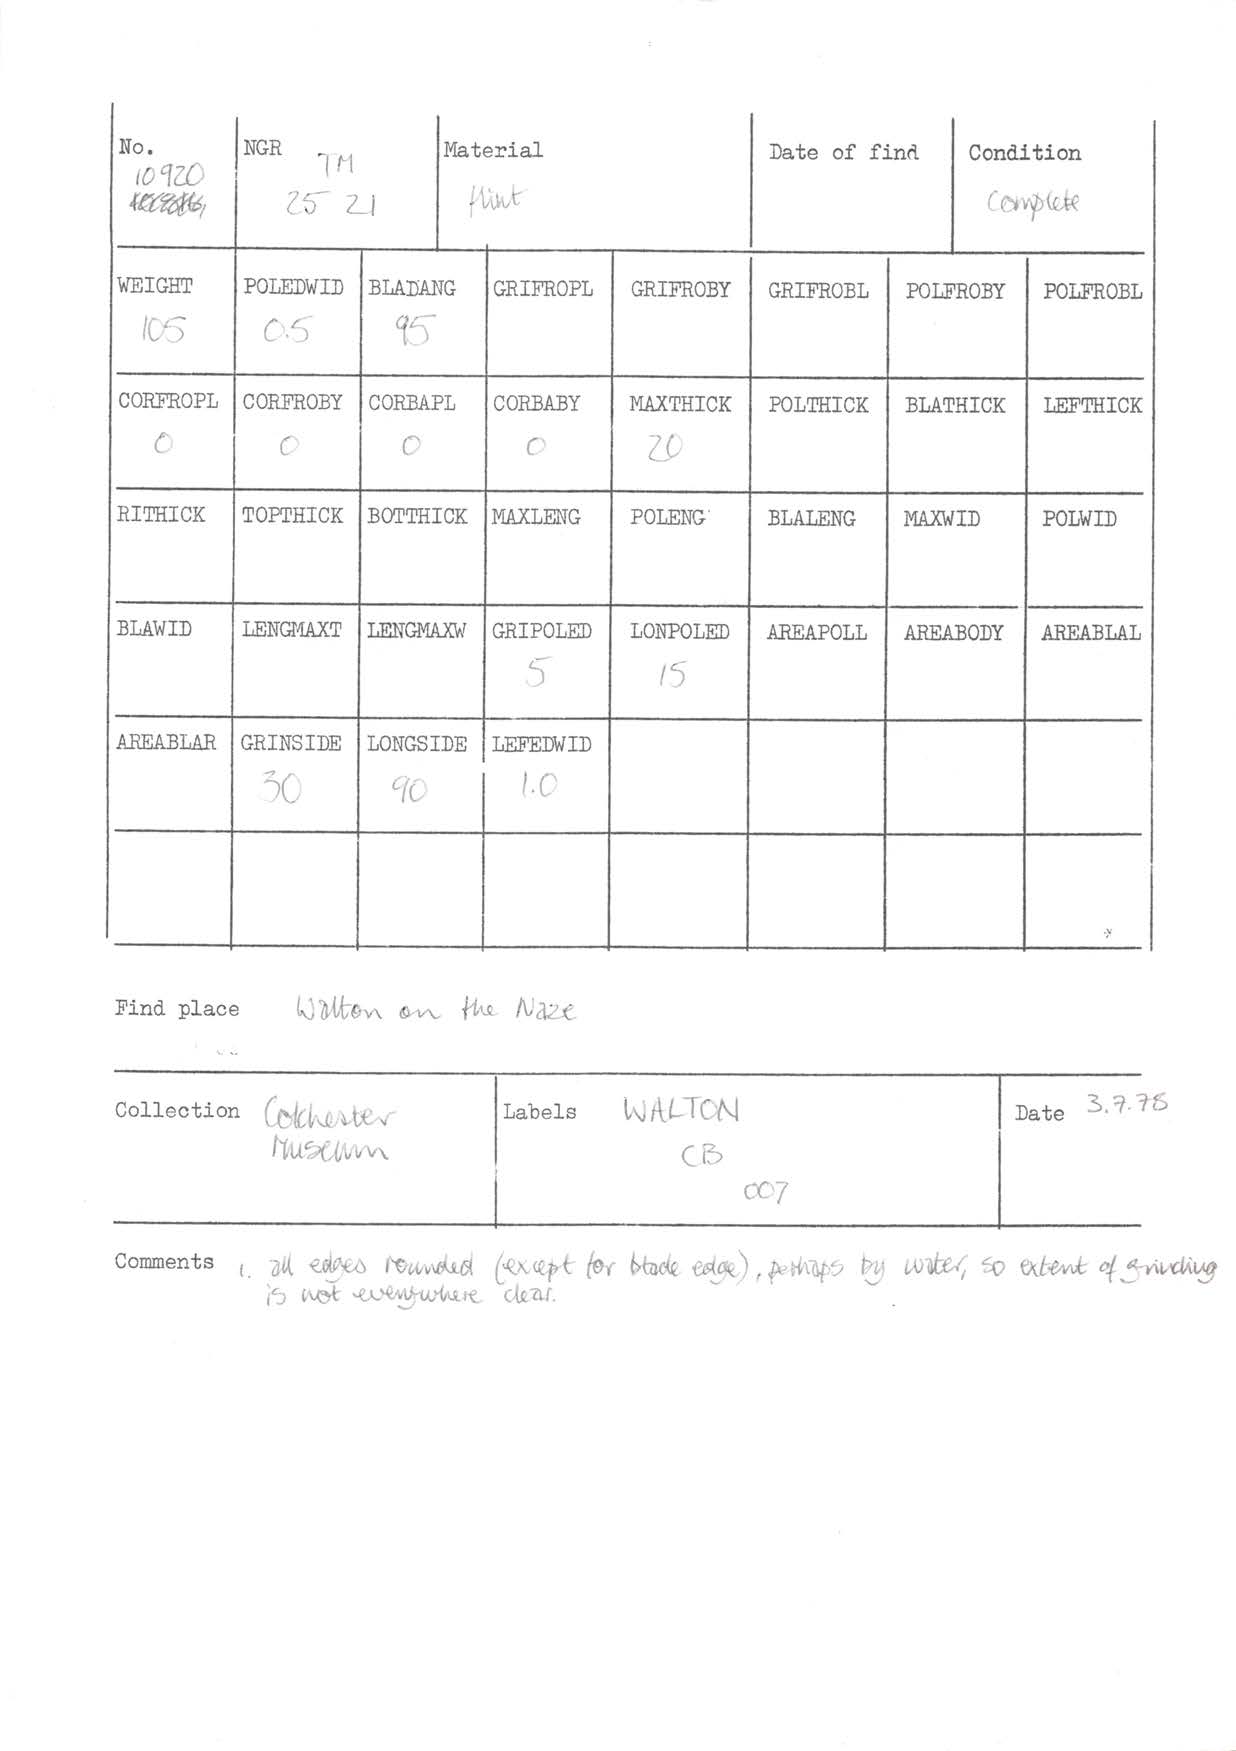 No. NGR Material Date of find Condition
10920 TM
25 21 flint Complete
WEIGHT POLEDWID BLADANG GRIFROPL GRIFROBY GRIFROBL POLFROBY POLFROBL
105 0.5 95
CORFROPL CORFROBY CORBAPL CORBABY MAXTHICK POLTHICK BLATHICK LEFTHICK
0 0 0 0 20
RITHICK TOPTHICK BOTTHICK MAXLENG POLENG BLALENG MAXWID POLWID
BLAWID LENGMAXT LENGMAXW GRIPOLED LONPOLED AREAPOLL AREABODY AREABLAL
5 15
AREABLAR GRINSIDE LONGSIDE LEFEDWID
30 90 1.0
Find place Walton on the Naze
Collection Colchester Labels WALTON Date 3.7.78
Museum CB
007
Comments 1. all edges rounded (except for blade edge), perhaps by water, so extent of grinding
is not everywhere clear.